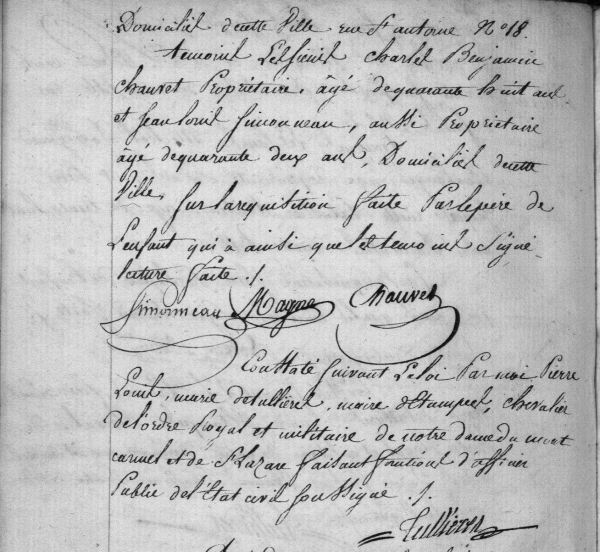 Domiciliés de cette Ville rue St antoine No 18.
témoins Les sieurs Charles Benjamin
Chauvet Propriétaire, âgé de quarante huit ans
et Jean Louis Simonneau, aussi Propriétaire
âgé de quarante deux ans, Domiciliés de cette
Ville, sur la requisition faite Par le père de
L'enfant qui à ainsi que les témoins signé
lecture faite ./.
Simonneau Magne Chauvet
Constaté suivant La loi Par moi Pierre
Louis, marie de tullieres, maire d'Etampes, chevalier
de l'ordre Royal et militaire de notre dame du mont
carmel et de St Lazare faisant fonctions d'officier
Public de l'Etat civil soussigné ./.
Tullieres